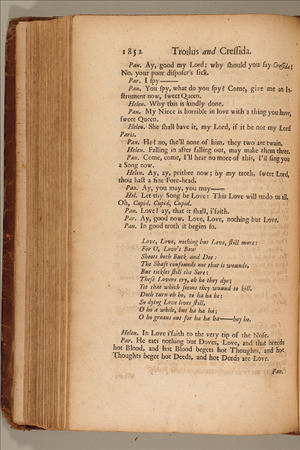 1852 Troilus and Cressida.
Pan. Ay, good my Lord; why should you say Cressida?
No. your poor disposer's sick.
Par. I spy——
Pan. You spy, what do you spy? Come, give me an In-
strument now, sweet Queen.
Helen. Why this is kindly done.
Pan. My Niece is horrible in love with a thing you have,
sweet Queen.
Helen. She shall have it, my Lord, if it be not my Lord
Paris.
Pan. He? no, she'll none of him, they two are twain.
Helen. Falling in after falling out, may make them three.
Pan. Come, come, I'll hear no more of this, I'll sing you
a Song now.
Helen. Ay, ay, prithee now; by my troth, sweet Lord,
thou hast a fine Fore-head.
Pan. Ay, you may, you may——
Hel. Let thy Song be Love: This Love will undo us all.
Oh, Cupid, Cupid, Cupid.
Pan. Love! ay, that it shall, i'faith.
Par. Ay, good now, Love, Love, nothing but Love.
Pan. In good troth it begins so.
Love, Love, nothing but Love, still more:
For O, Love's Bow
Shoots both Buck and Doe:
The Shaft confounds not that it wounds,
But tickles still the Sore:
These Lovers cry, oh ho they dye;
Yet that which seems they wound to kill,
Doth turn oh ho, to ha ha he:
So dying Love lives still,
O ho a while, but ha ha ha;
O ho groans out for ha ha ha——hey ho.
Helen. In Love i'faith to the very tip of the Nose.
Par. He eats nothing but Doves, Love, and that breeds
hot Blood, and hot Blood begets hot Thoughts, and hot
Thoughts beget hot Deeds, and hot Deeds are Love.
Pan.